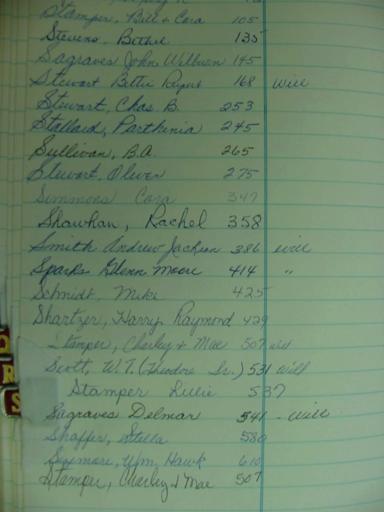 Stamper, Bill & Cora 105
Stevens, Bethel 135
Sagraves John Wilburn 145
Stewart Bettie 168 will
Stewart, Chas. B. 253
Stallard, Parthenia 245
Sullivan, B.A. 265
Stewart, Oliver 275
Simmons Cora 347
Shawhan, Rachel 358
Smith Andrew Jackson 386 will
Sparks Glenn Moore 414 "
Schmidt, Mike 425
Shartzer, Harry Raymond 429
Stamper, Charley & Mae 507
Scott, W.T. (Theodore Sr.) 531 will
Stamper Lillie 537
Sagraves Delmar 541 - will
Shaffer, Stella 580
Sizemore, Wm. Hawk 610
Stamper, Charley & Mae 507
R
S